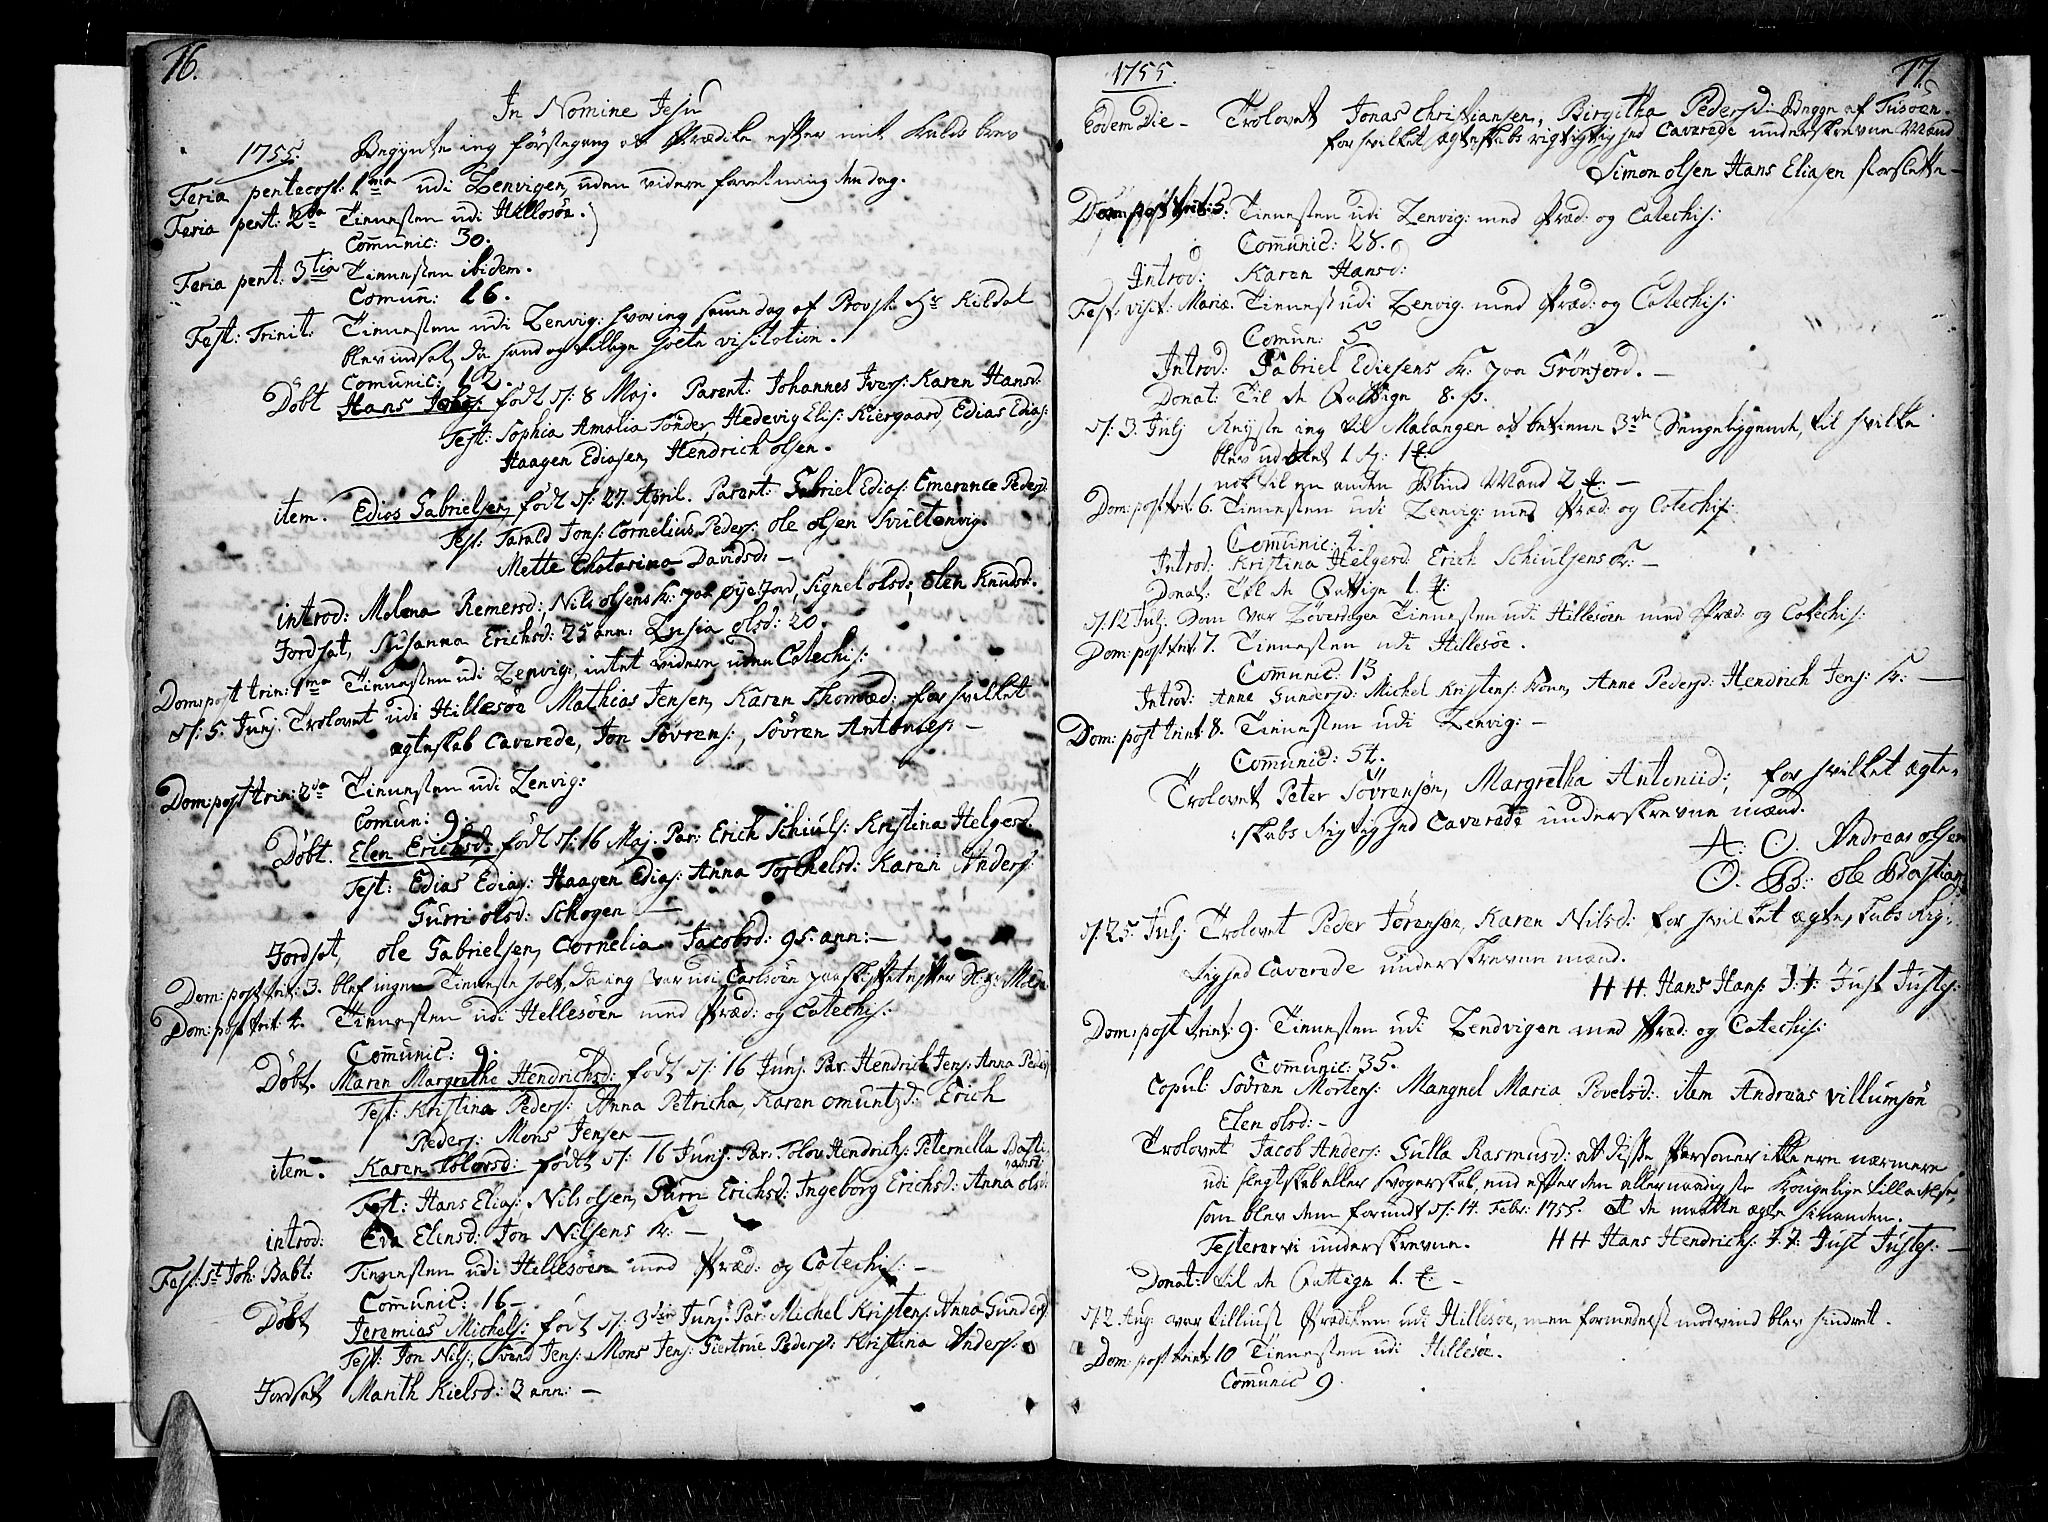 16.
In Nomine Jesu
1755. Begynte ieg förstegang at Prædike efter mit Kalds brev
Feria pentecost: 1ma udi Lenvigen, uden videre forretning den dag.
Feria pent: 2da Tienesten udi Hillesöe.
Comunic: 30.
Feria pent: 3tia Tienesten ibidem.
Comun: 16.
Fest: Trinit: Tienesten udi Lenvig: hvor ieg samme dag af Provst Hr Kildal
blev indsat, da hand og tillige holte visitation.
Comunic: 12.
Döbt Hans Johs: födt d: 8 Maj. Parent: Johannes Ivers: Karen Hansd:
Test: Sophia Amalia Sönder, Hedevig Elis: Kiergaard, Edias Edias:
Haagen Ediasen, Hendrich olsen.
item. Edias Gabrielsen, födt d: 27 April. Parent: Gabriel Edias: Emerence Peders:
Test: Tarald Jons: Cornelius Peders: ole olsen Svultenvig.
Mette Chatarina Davidsd: –
introd: Malena Remersd:, Nils olsens K: paa öyeJord, Signel olsd:, Elen Knudsd:
Jordsat, Susanna Erichsd: 25 ann: Lusia olsd: 20.
Dom: post trin: 1ma Tienesten udi Lenvig:, intet videre uden Catechis:
d: 5. Junj. Trolovet udi Hillesöe Mathias Jensen, Karen Thomæd: for hvilket
ægteskab Caverede, Jon Sövrens:, Sövren Antonies: –
Dom: post trin: 2da Tienesten udi Lenvig:
Comun: 9.
Döbt. Elen Erichsd: födt d: 16 Maj. Par: Erich Schiuls: Kristina Helgesd.
Test: Edias Edias: Haagen Edias: Anna Tosthelsd: Karen Anders:
Gurri olsd: Schogen –
Jordsat, ole Gabrielsen, Cornelia Jacobsd: 95. ann: –
Dom: post trit: 3. blef ingen Tieneste holt, da ieg var udi Carlsöen paa skiftet efter
Dom: post trit: 4. Tienesten udi Hellesöen med Præd: og Catechis:
Comunic: 9.
Döbt. Maren Margrethe Hendrichsd: födt d: 16 Junj. Par: Hendrich Jens: Anna Peders:
Test: Kristina Peders: Anna Petricha, Karen omuntzd: Erich
Peders: Mons Jensen –
item. Karen Tolovsd: födt d: 16 Junj. Par: Tolov Hendrichs: Peternella Basti-
ansd:
Test: Hans Elias: Nils olsen, Gurri Erichsd: Ingeborg Erichsd: Anna olsd:
introd: Eva Eliensd: Jon Nilsens K: –
Fest: St Joh: Babt: Tienesten udi Hillesöen med Præd: og Catechis: –
Comunic: 16 –
Döbt Jeremias Michels: födt d: 3die Junj. Par: Michel Kristens: Anna Gundersd:
Test: Jon Nils:, Svend Jens: Mons Jens: Giertrue Peders: Kristina Anders:
Jordsat Marith Kielsd: 3 ann: –
1755. 17.
Eodem Die – Trolovet Jonas Christiansen, Birgitha Pedersd: Begge af Tusöen.
for hvilket ægteskabs rigtigtighed Caverede underskrevne Mænd
Simon olsen Hans Eliasen Klorslette –
Dom: post trit: 5: Tienesten udi Lenvig: med Præd: og Catechis:
Communic: 28.
Introd: Karen Hansd:
Fest: visit: Mariæ. Tienest udi Lenvig: med Præd: og Catechis:
Comun: 5
Introd: Gabriel Ediesens K: paa Grönjord. –
Donat: Til de Fattige 8. s.
d: 3. Julj Reyste ieg til Malangen at betiene 3de Sengeliggende, til hvilke
blev uddelet 1
nok til en anden Blind Mand 2 –
Dom: post trit: 6. Tienesten udi Lenvig: med Præd: og Catechis:
Communic: 4.
Introd: Kristina Helgesd: Erich Schiulsens K: –
Donat: Til de Fattige 1.
d: 12 Julj. Som var Löverdagen Tienesten udi Hillesöen med Præd: og Catechis:
Dom: post trit: 7. Tienesten udi Hillesöe.
Communic: 13
Introd: Anne Gundersd: Michel Kristens: Kone, Anne Pedersd: Hendrich Jens: K: –
Dom: post trint: 8. Tienesten udi Lenvig: –
Communic: 54.
Trolovet Peter Sövrensön, Margretha Antoniid:, for hvilket ægte-
skabs Rigtighed Caverede underskrevne mænd.
A: O. Andreas olsen
O. B: ole Bastians
d: 25 Julj Trolovet Peder Jörensön, Karen Nilsd: for hvilket ægteskabs Rig-
tighed Caverede underskrevne mænd.
H H. Hans Hans: J: J: Just Justes:
Dom: post trint: 9. Tienesten udi Lendvigen med Præd: og Catechis:
Communic: 35.
Copul: Sövren Mortens: Mangnel Maria Povelsd: item Andreas Villumsön
Elen olsd: –
Trolovet Jacob Anders: Gulla Rasmusd: at disse Personer ikke ere nærmere
udi slegtskab eller Svogerskab, end efter den allernaadigste Kongelige tilladelse,
som blev dem forundt d: 14. Febr: 1755. at de maatte ægte hinanden.
Testerer vi underskrevne. H H Hans Hendrichs: J: J: Just Justes: –
Donat: til de Fattige 1. –
d: 2 Aug: var tillyist Prædiken udi Hillesöe, men formedelst modvind blev hindret.
Dom: post trint: 10 Tienesten udi Hillesöe.
Communic 9.